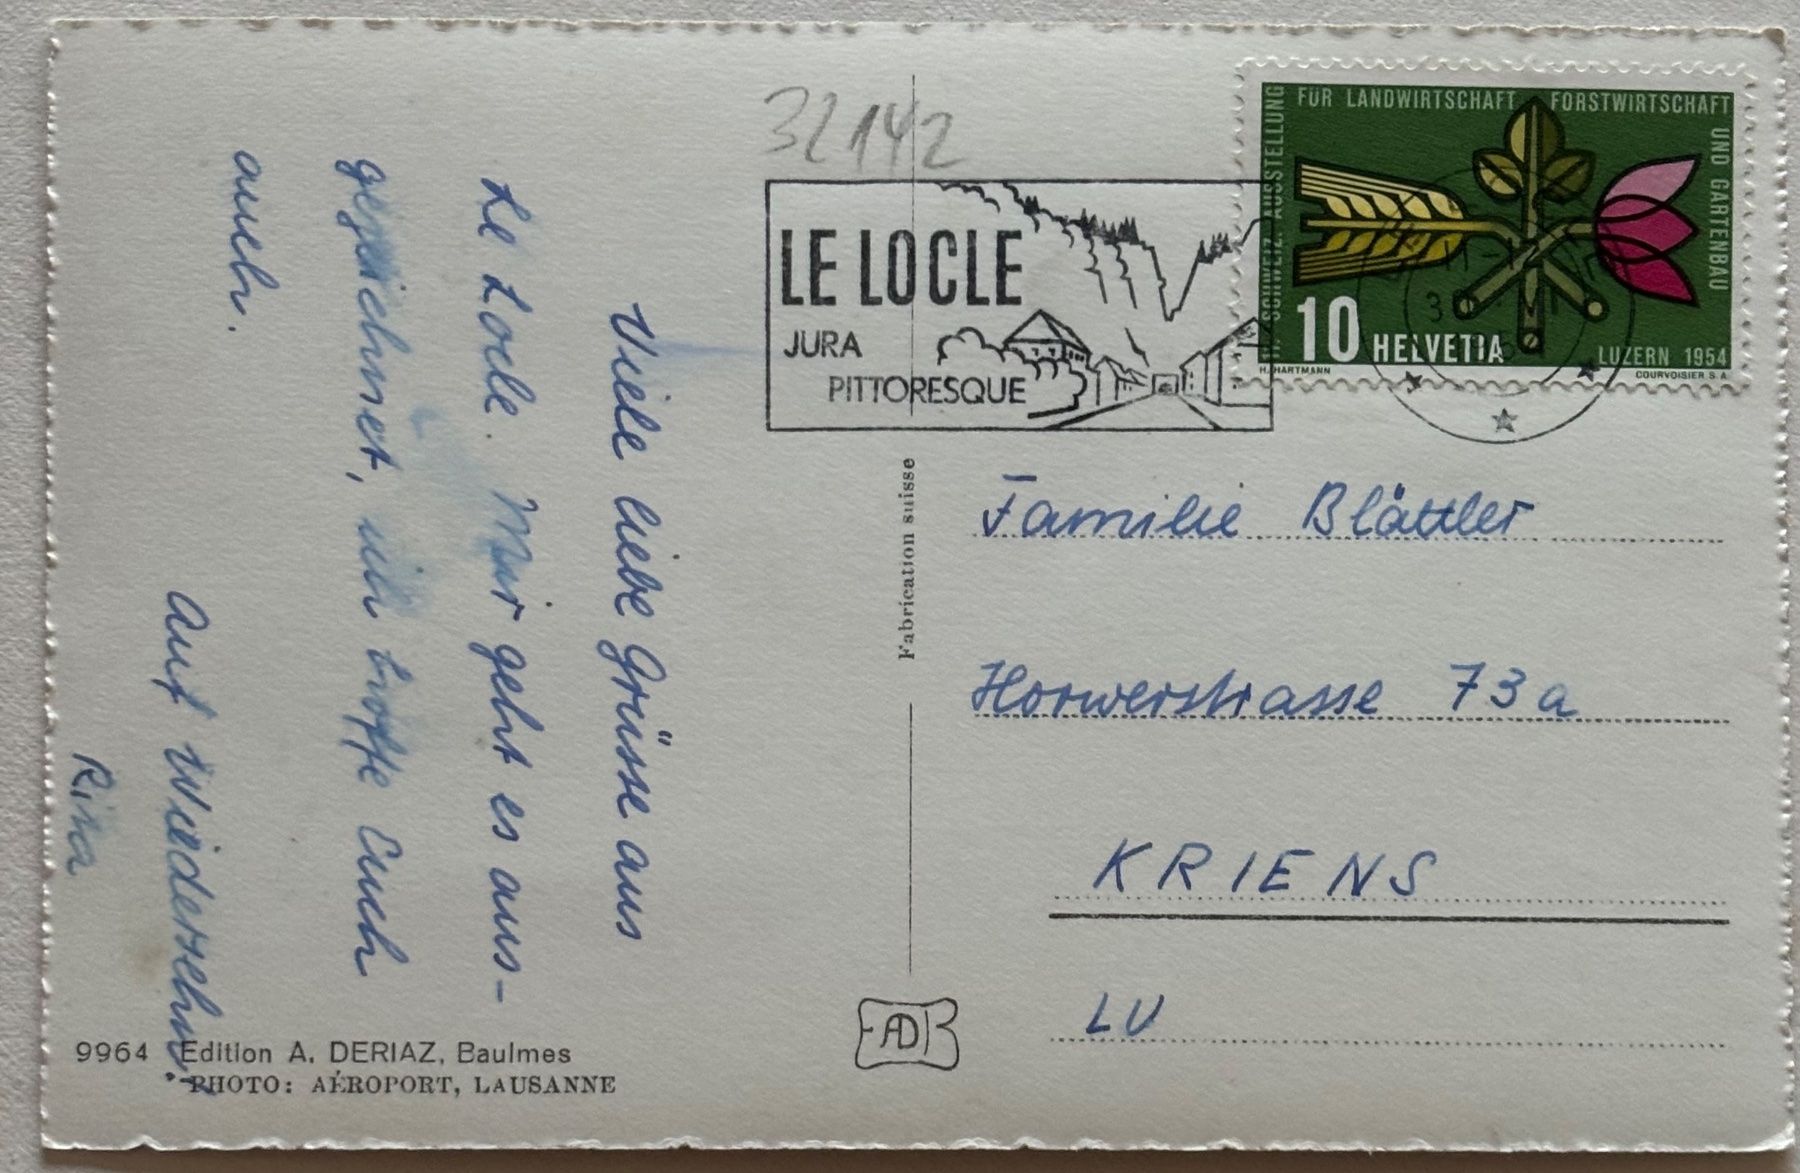 32142
LE LOCLE
JURA
PITTORESQUE
11. SCHWEIZ. AUSSTELLUNG
FÜR LANDWIRTSCHAFT FORSTWIRTSCHAFT
UND GARTENBAU
10 HELVETIA
LUZERN 1954
H. HARTMANN
COURVOISIER S.A.
Viele liebe Grüsse aus
Le Locle. Mir geht es aus-
gezeichnet, ich hoffe Euch
auch.
Auf Wiedersehn!
Rina
Fabrication suisse
Familie Blättler
Horwerstrasse 73a
KRIENS
LU
EADB
9964 Edition A. DERIAZ, Baulmes
PHOTO: AÉROPORT, LAUSANNE